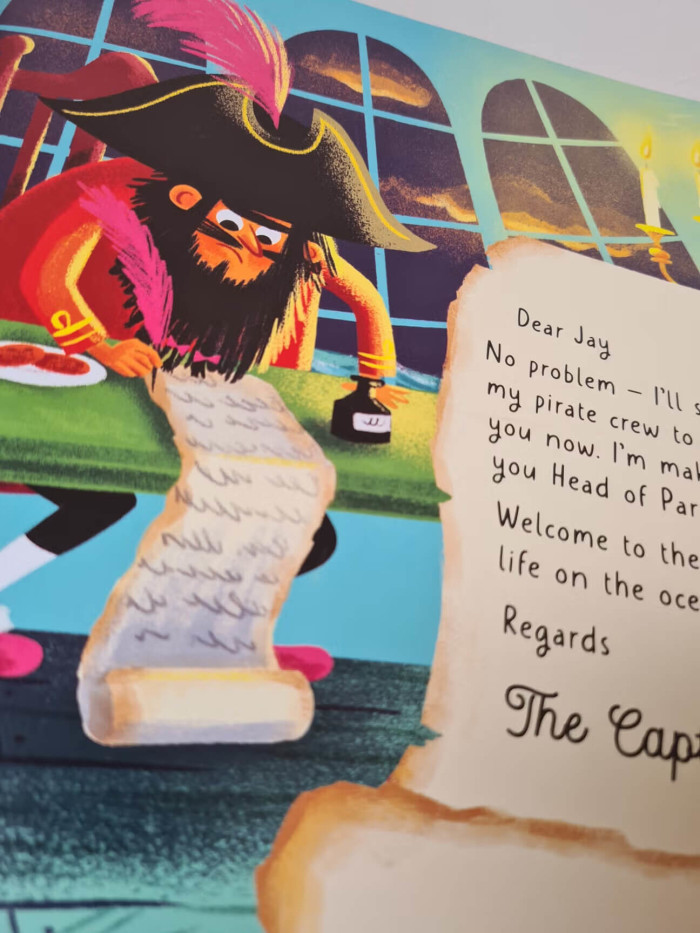 Dear Jay
No problem – I'll
my pirate crew to
you now. I'm
you Head of
Welcome to the
life on the
Regards
The